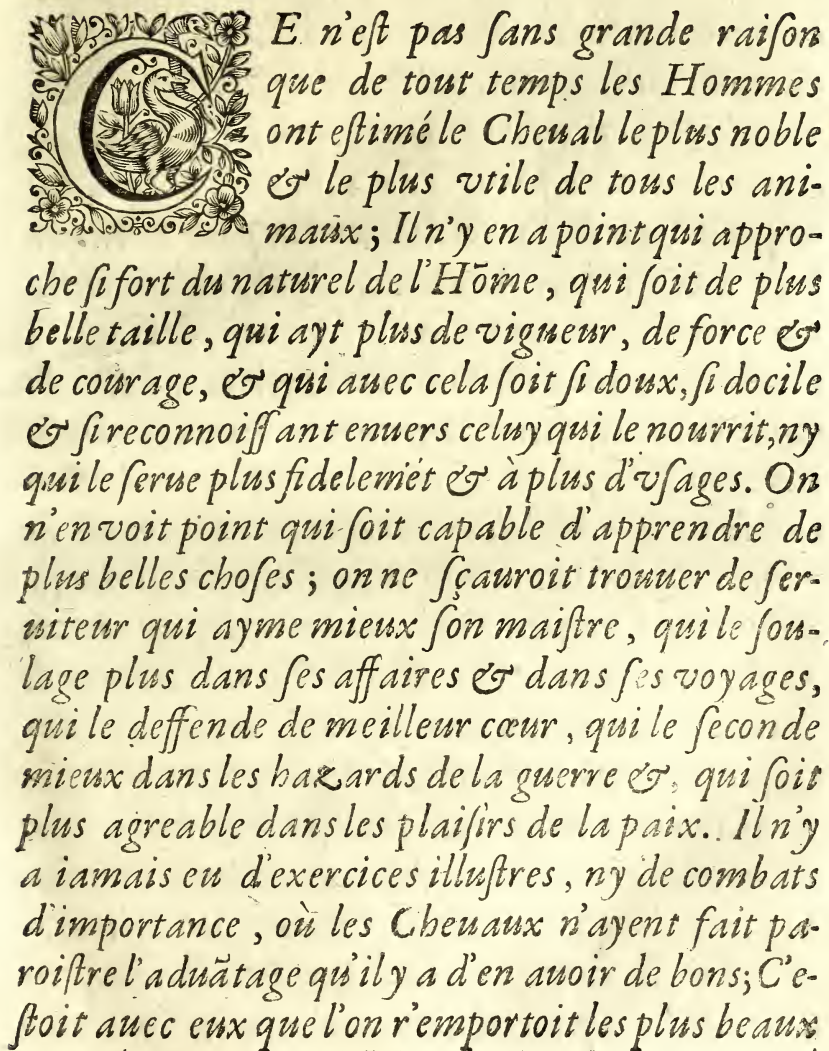 CE n'eſt pas ſans grande raiſon
que de tout temps les Hommes
ont eſtimé le Cheual le plus noble
& le plus vtile de tous les ani-
maux ; Il n'y en a point qui appro-
che ſi fort du naturel de l'Hõme , qui ſoit de plus
belle taille , qui ayt plus de vigueur , de force &
de courage, & qui auec cela ſoit ſi doux, ſi docile
& ſi reconnoiſſant enuers celuy qui le nourrit, ny
qui le ſerue plus fidelemẽt & à plus d'vſages. On
n'en voit point qui ſoit capable d'apprendre de
plus belles choſes ; on ne ſçauroit trouuer de ſer-
uiteur qui ayme mieux ſon maiſtre , qui le ſou-
lage plus dans ſes affaires & dans ſes voyages,
qui le deffende de meilleur cœur , qui le ſeconde
mieux dans les hazards de la guerre & , qui ſoit
plus agreable dans les plaiſirs de la paix. Il n'y
a iamais eu d'exercices illuſtres , ny de combats
d'importance , où les Cheuaux n'ayent fait pa-
roiſtre l'aduãtage qu'il y a d'en auoir de bons; C'e-
ſtoit auec eux que l'on r'emportoit les plus beaux